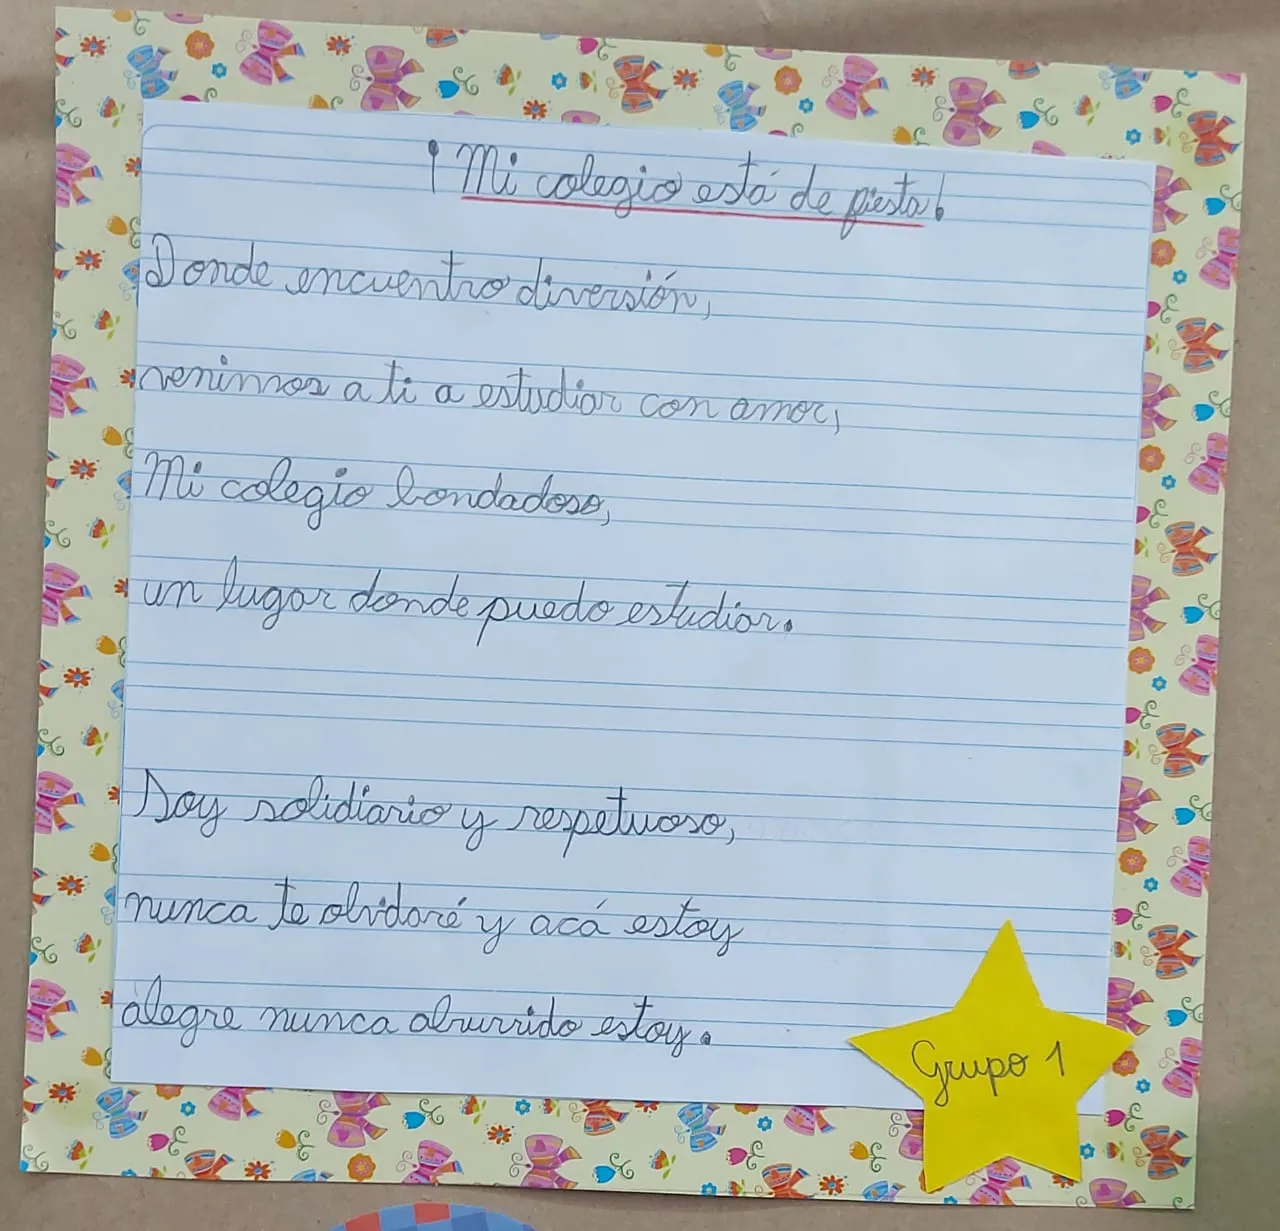 ¡Mi colegio está de fiesta!
Donde encuentro diversión,
venimos a ti a estudiar con amor,
Mi colegio bondadoso,
un lugar donde puedo estudiar.
Soy solidiario y respetuoso,
nunca te olvidaré y acá estoy
alegre nunca aburrido estoy.
Grupo 1